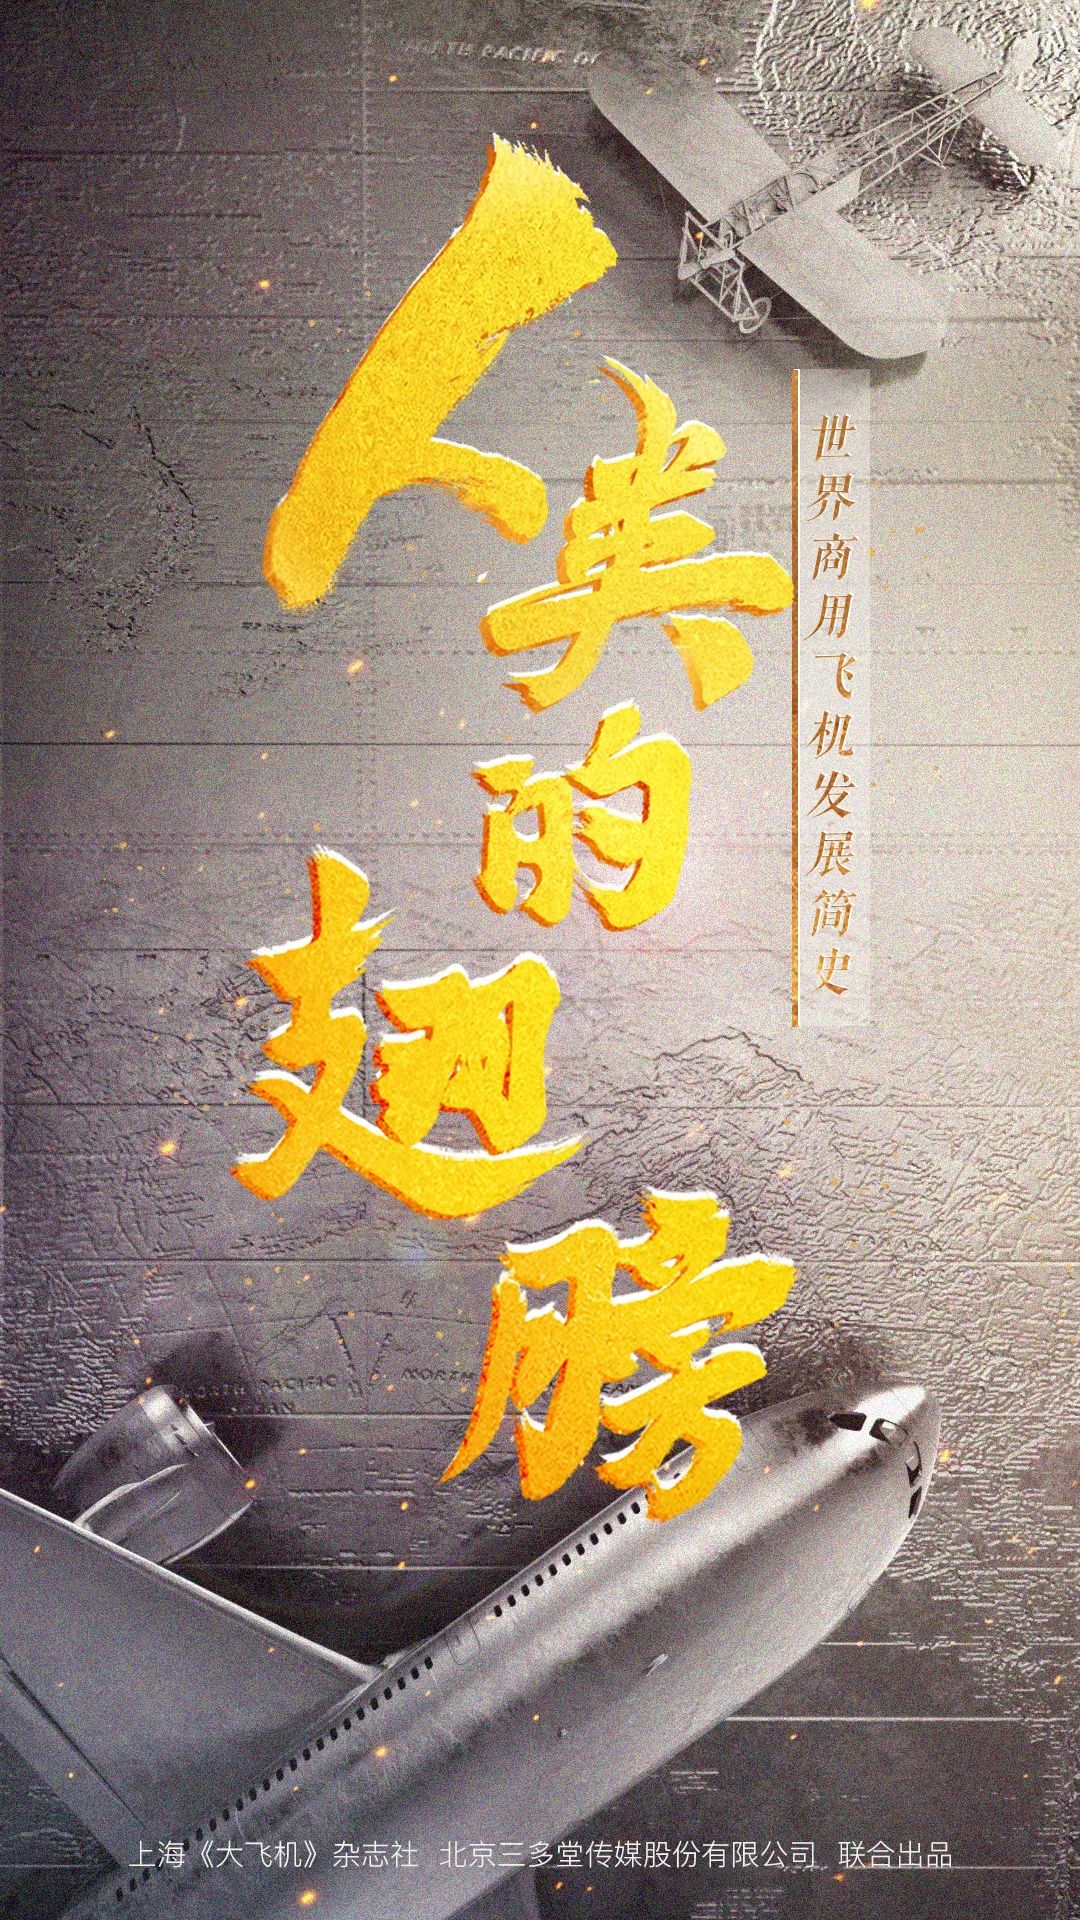 人类的翅膀
世界商用飞机发展简史
NORTH PACIFIC
上海《大飞机》杂志社 北京三多堂传媒股份有限公司 联合出品